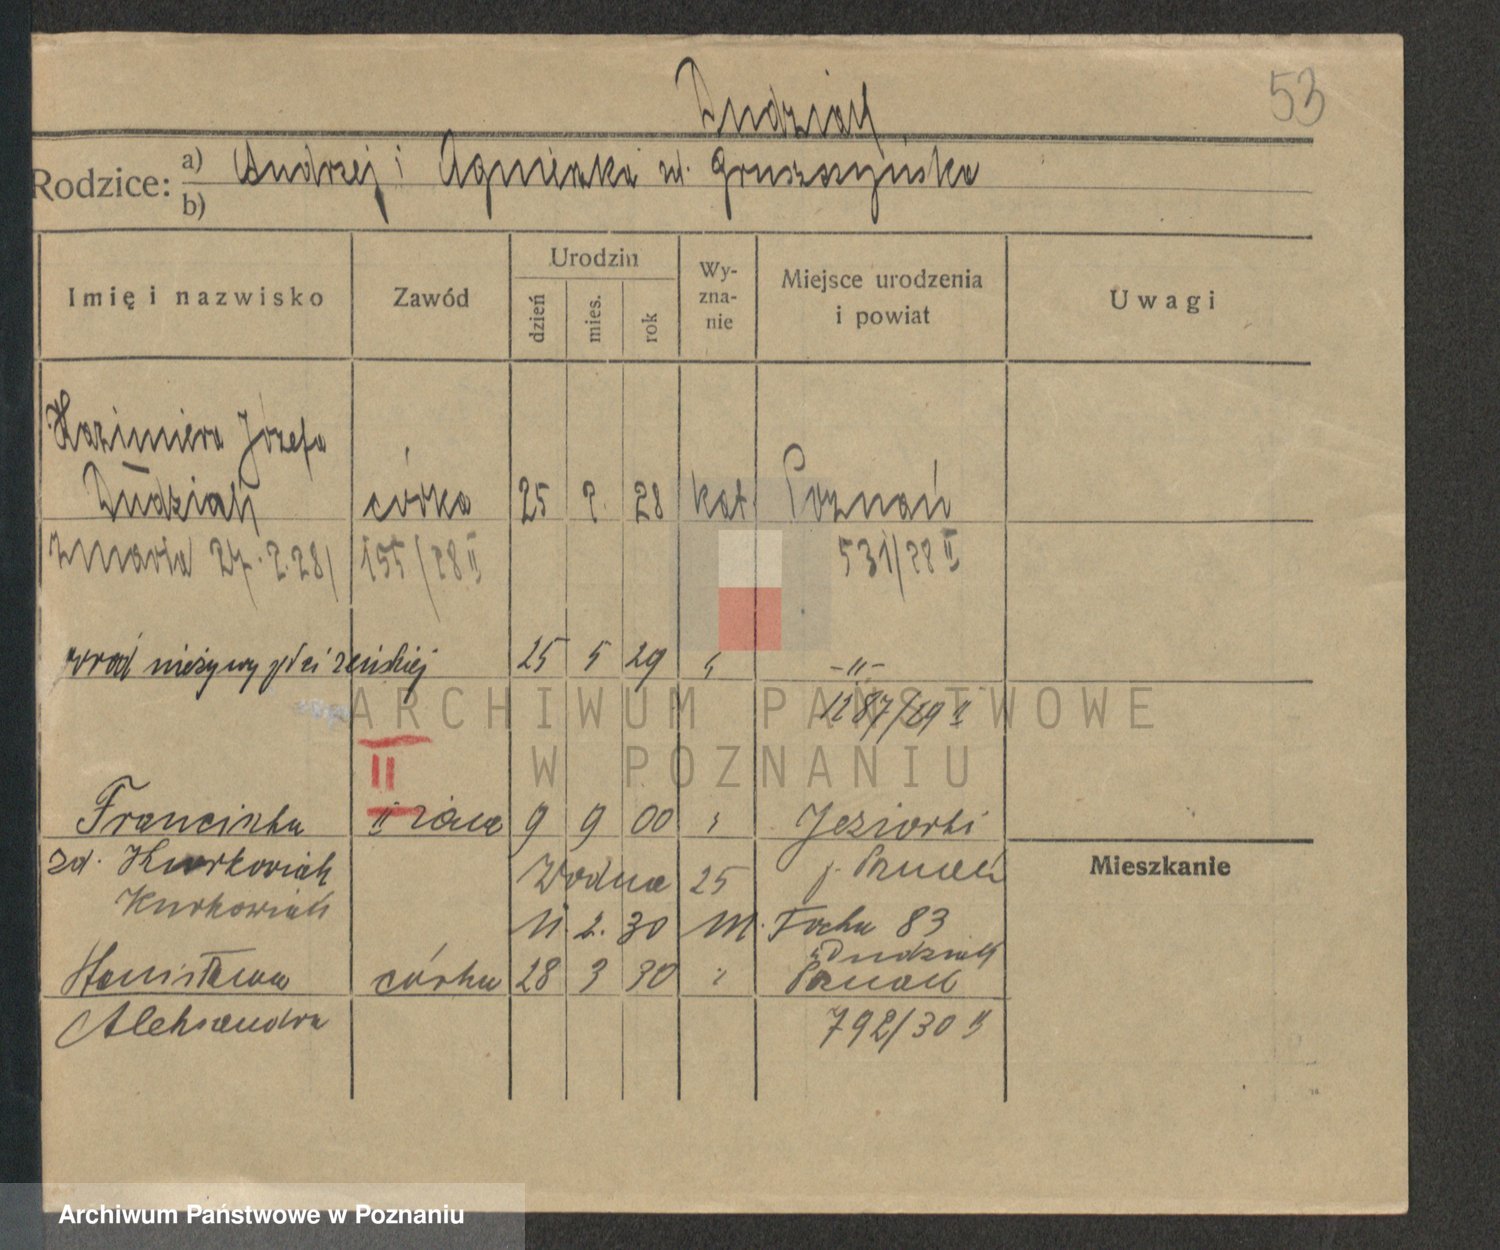 53
Dudziak
Rodzice: a) Andrzej i Agnieszka zd. Gruszczyńska
b)
Imię i nazwisko Zawód Urodzin dzień mies. rok Wy-zna-nie Miejsce urodzenia i powiat Uwagi
Kazimiera Józefa
Dudziak córka 25 2. 28 kat. Poznań
zmarła 27.2.28 155/28 II 531/28 II
nieżywy płci żeńskiej 25 5 29 " -"-
1287/29 II
II
Franciszka II żona 9 9 00 " Jeziorki
zd. Kurkowiak Wodna 25 p. Poznań
Kurkowiak 11. 2. 30 M. Focha 83
Mieszkanie
Dudziak
Stanisława córka 28 3 30 " Poznań
Aleksandra 792/30 II
ARCHIWUM PAŃSTWOWE
W POZNANIU
Archiwum Państwowe w Poznaniu